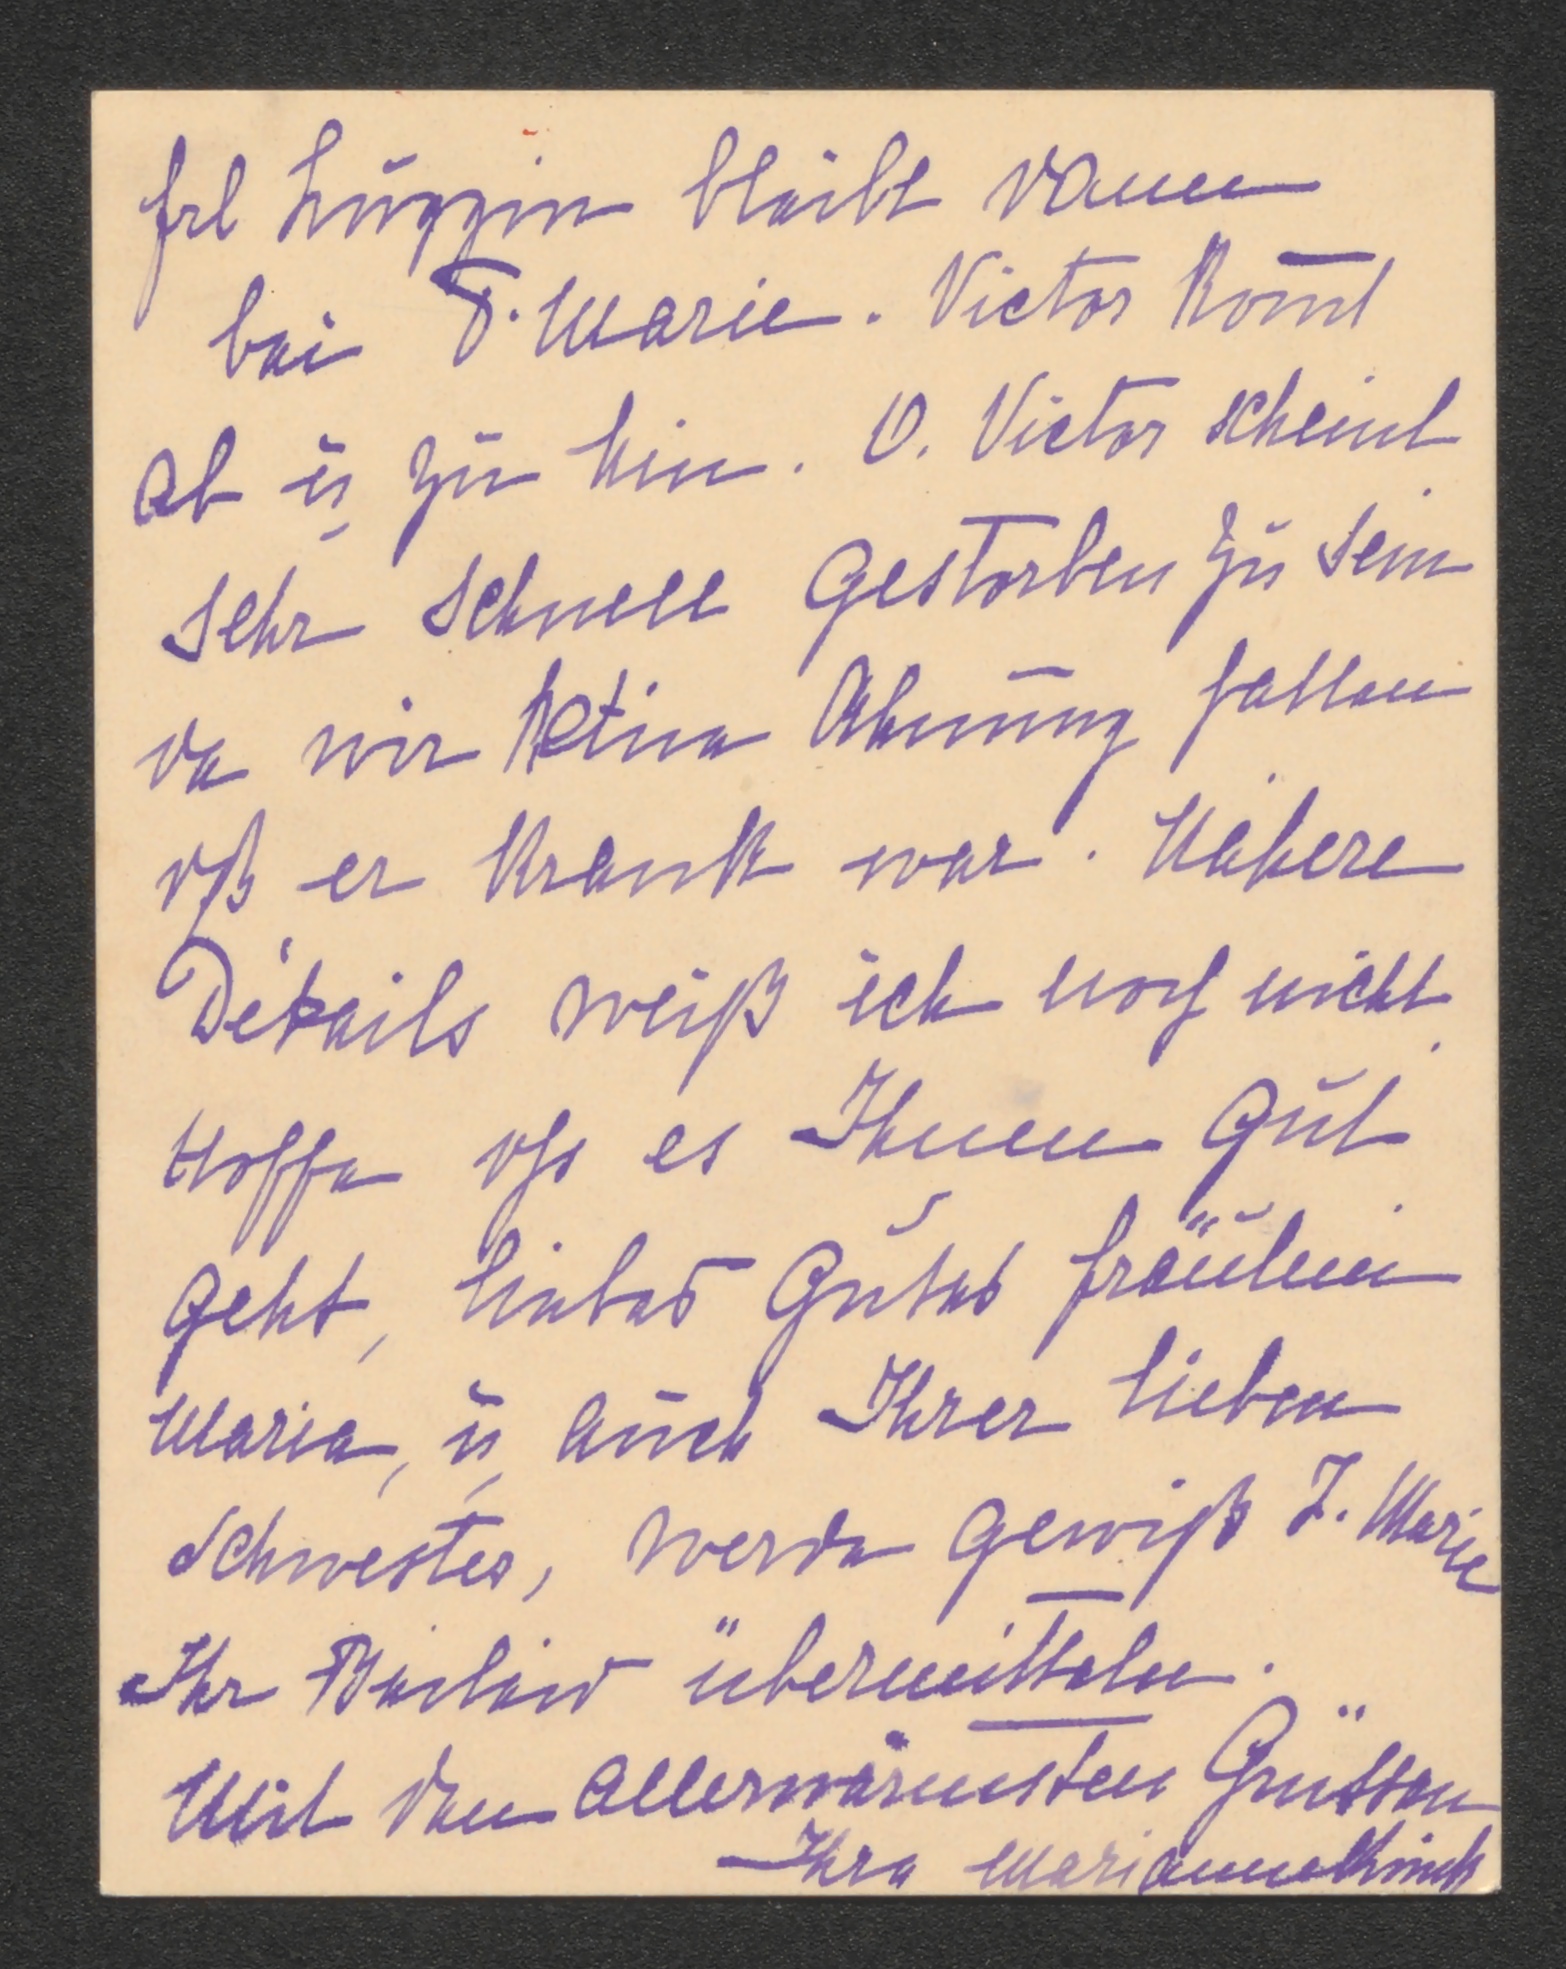 Frl Luggin bleibt dann
bei T. Marie. Victor kom̅t
ab u zu hin. O. Victor scheint
sehr schnell gestorben zu sein
da wir keine Ahnung hatten
dß er krank war. Nähere
Détails weiß ich noch nicht.
Hoffe dſs es Ihnen gut
geht, liebes gutes Fräulein
Maria, u auch Ihrer lieben
Schwester, werde gewiß T. Marie
Ihr Beileid übermitteln.
Mit den allerwärmsten Grüssen
Ihre Marianne